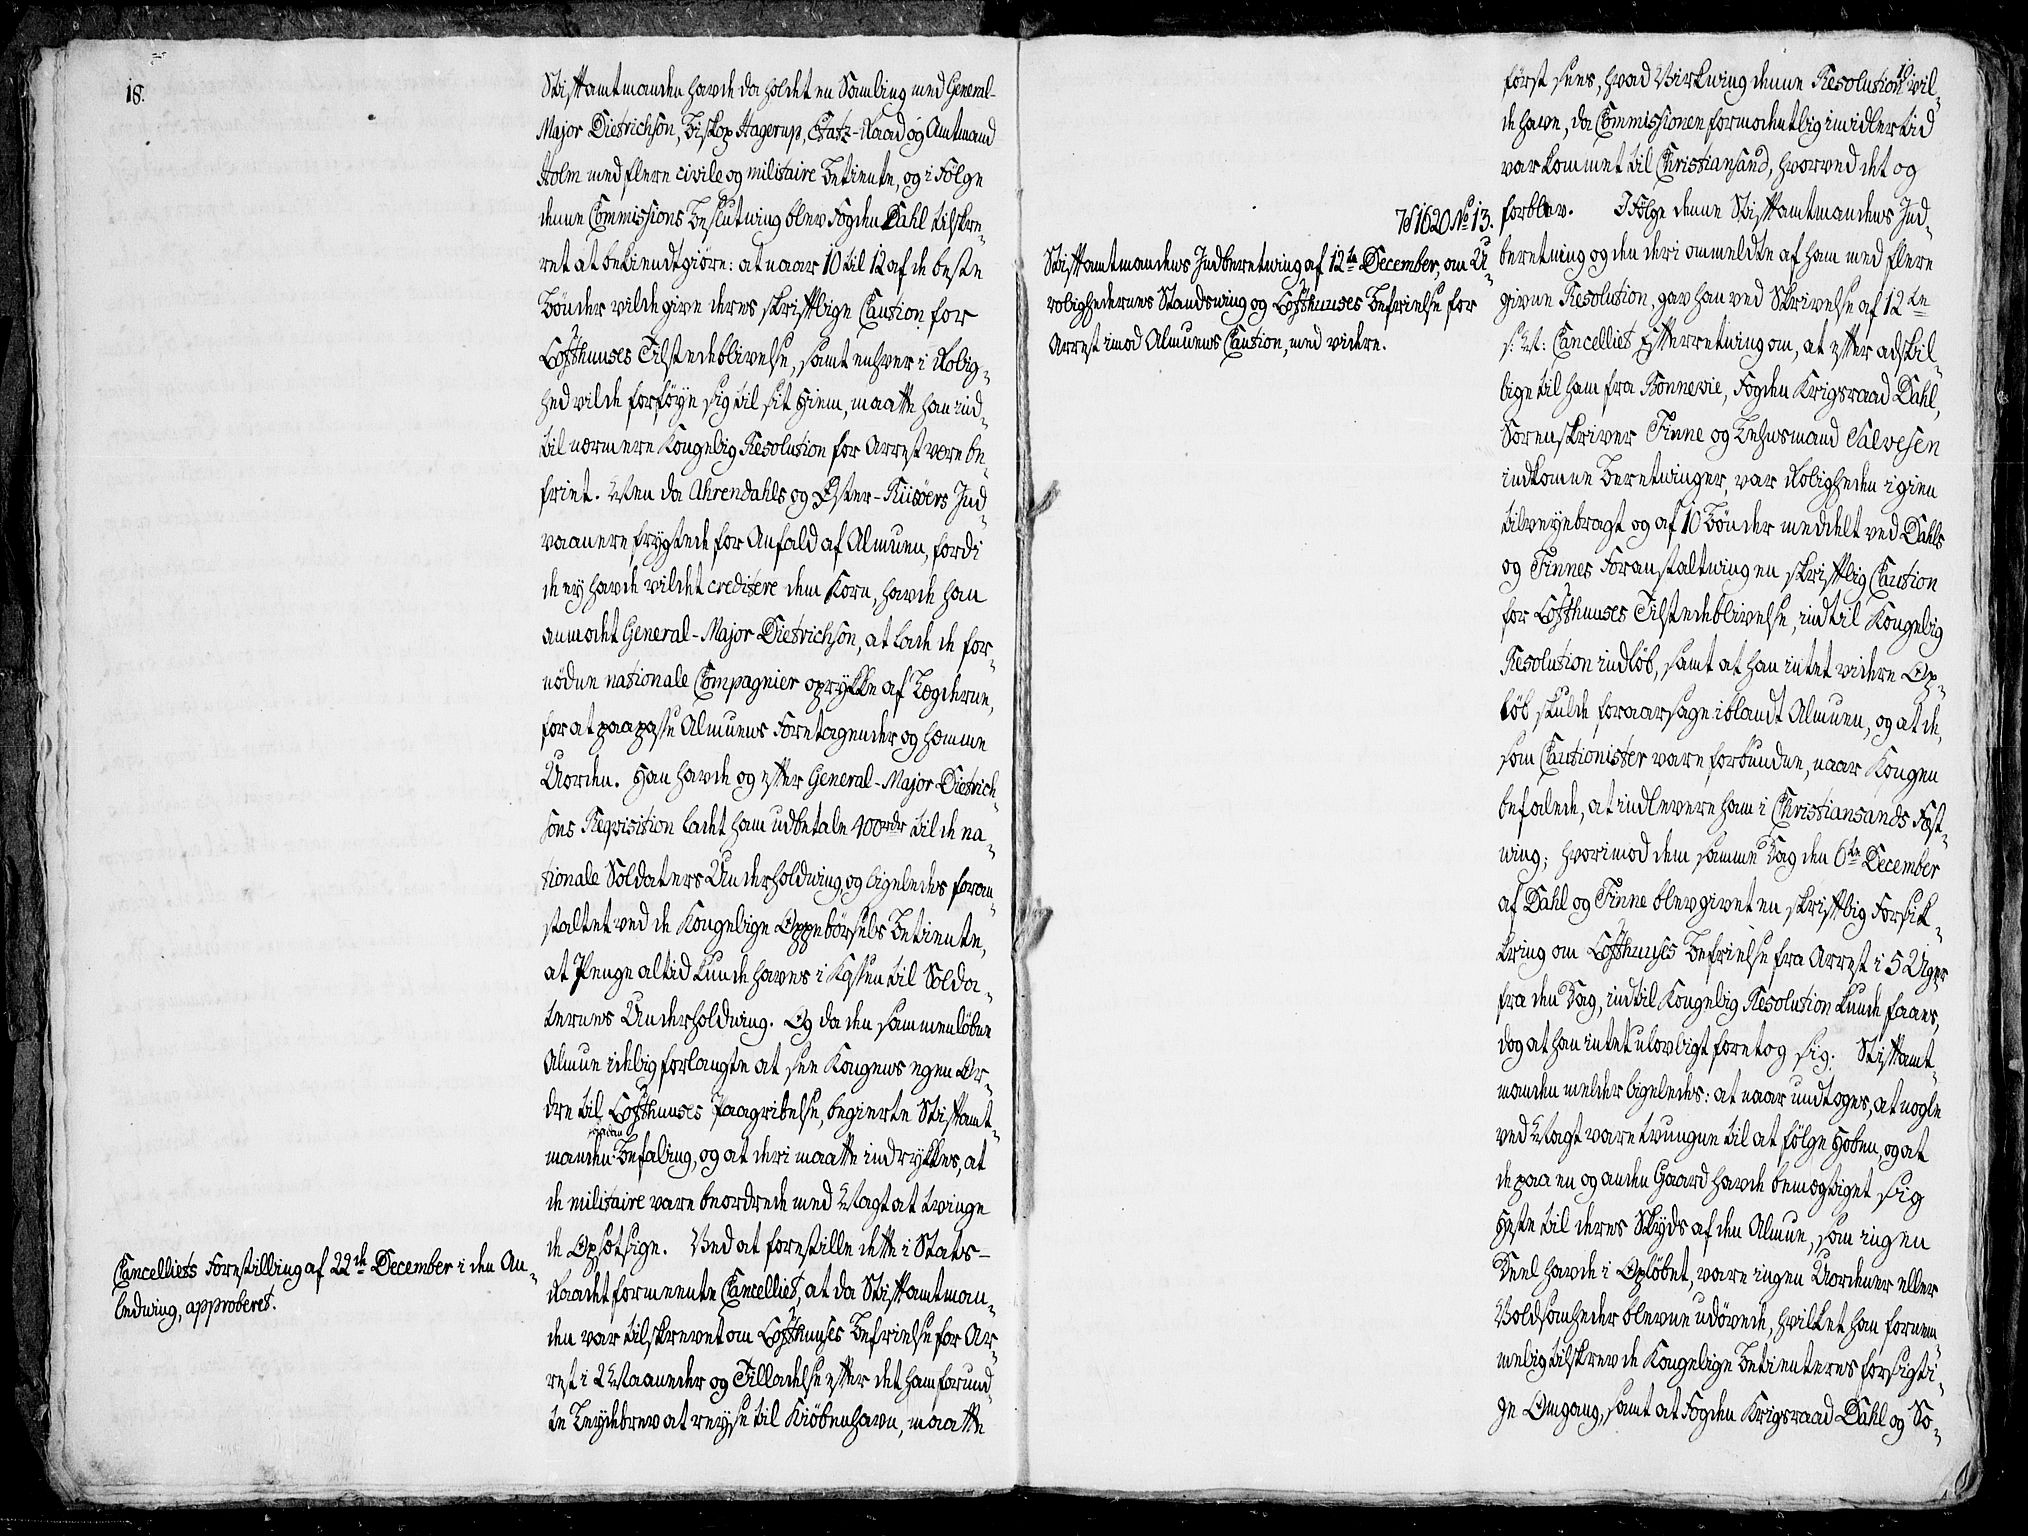 18.
Stiftamtmanden havde da holdet en Samling med General-
Major Dietrichson, Biskop Hagerup, Etatz-Raad og Amtmand
Holm med flere civile og militaire Betiente, og i Følge
denne Commissions Beslutning blev Fogden Dahl tilskre-
vet at bekiendtgiøre: at naar 10 til 12 af de beste
Bønder vilde give deres skriftlige Caution for
Lofthuuses Tilstedeblivelse, samt enhver i Rolig-
hed vilde forføye sig til sit Hiem, maatte han ind-
til nærmere Kongelig Resolution for Arrest være be-
friet. Men da Ahrendahls og Øster-Riisøers Ind-
vaanere frygtede for Anfald af Almuen, fordi
de ey havde vildet creditere dem Korn, havde han
anmodet General-Major Dietrichson, at lade de for-
nødne nationale Compagnier oprykke af Lægderne,
for at paapasse Almuens Foretagender og hæmme
Uorden. Han havde og efter General-Major Dietrich-
sons Reqvisition ladet ham udbetale 400 rdr til de na-
tionale Soldaters Underholdning, og ligeledes foran-
staltet ved de Kongelige Oppebørsels Betiente,
at Penge altid kunde haves i Kysten til Solda-
ternes Underholdning. Og da den sammenløbne
Almue idelig forlangte at see Kongens egen Or-
dre til Lofthuuses Paagribelse, begierte Stiftamt-
manden saadan Befaling, og at deri maatte indrykkes, at
de militaire vare beordrede med Magt at tvinge
de Opsætsige. Ved at forestille dette i Stats-
Raadet formeente Cancelliet, at da Stiftamtman-
den var tilskrevet om Lofthuuses Befrielse for Ar-
rest i 2 Maaneder og Tilladelse efter det ham forund-
te Leydebrev at reyse til Kiøbenhavn, maatte
Cancelliets Forestilling af 22de December i den An-
ledning, approberet.
19
først sees, hvad Virkning denne Resolution vil-
de have, da Commissionen formodentlig imidlertid
var kommet til Christiansand, hvorved det og
forblev. I Følge denne Stiftamtmandens Ind-
beretning og den deri ommeldte af ham med flere
givne Resolution, gav han ved Skrivelse af 12te
s: M: Cancelliet Efterretning om, at efter adskil-
lige til ham fra Bonnevie, Fogden Krigsraad Dahl,
Sorenskriver Finne og Lehnsmand Salvesen
indkomne Beretninger, var Roligheden igien
tilveyebragt og af 10 Bønder meddelt ved Dahls
og Finnes Foranstaltning en skriftlig Caution
for Lofthuuses Tilstedeblivelse, indtil Kongelig
Resolution indløb, samt at han intet videre Op-
løb skulde foraarsage iblandt Almuen, og at de,
som Cautionister vare forbundne, naar Kongen
befalede, at indlevere ham i Christiansands Fæst-
ning; hvorimod dem samme Dag den 6te December
af Dahl og Finne blev givet en skriftlig Forsik-
kring om Lofthuuses Befrielse fra Arrest i 5 Uger
fra den Dag, indtil Kongelig Resolution kunde faaes,
dog at han intet ulovligt foretog sig. Stiftamt-
manden melder ligeledes: at naar undtoges, at nogle
ved Magt vare tvungne til at følge Hoben, og at
de paa en og anden Gaard havde bemægtiget sig
Heste til deres Skyds af den Almue, som ingen
Deel havde i Opløbet, vare ingen Uordener eller
Voldsomheder blevne udøvede, hvilket han fornem-
melig tilskrev de Kongelige Betienteres forsigti-
ge Omgang, samt at Fogden Krigsraad Dahl og So-
781620 No 13.
Stiftamtmandens Indberetning af 12te December, om U-
rolighedernes Standsning og Lofthuuses Befrielse for
Arrest imod Almuens Caution, med videre.